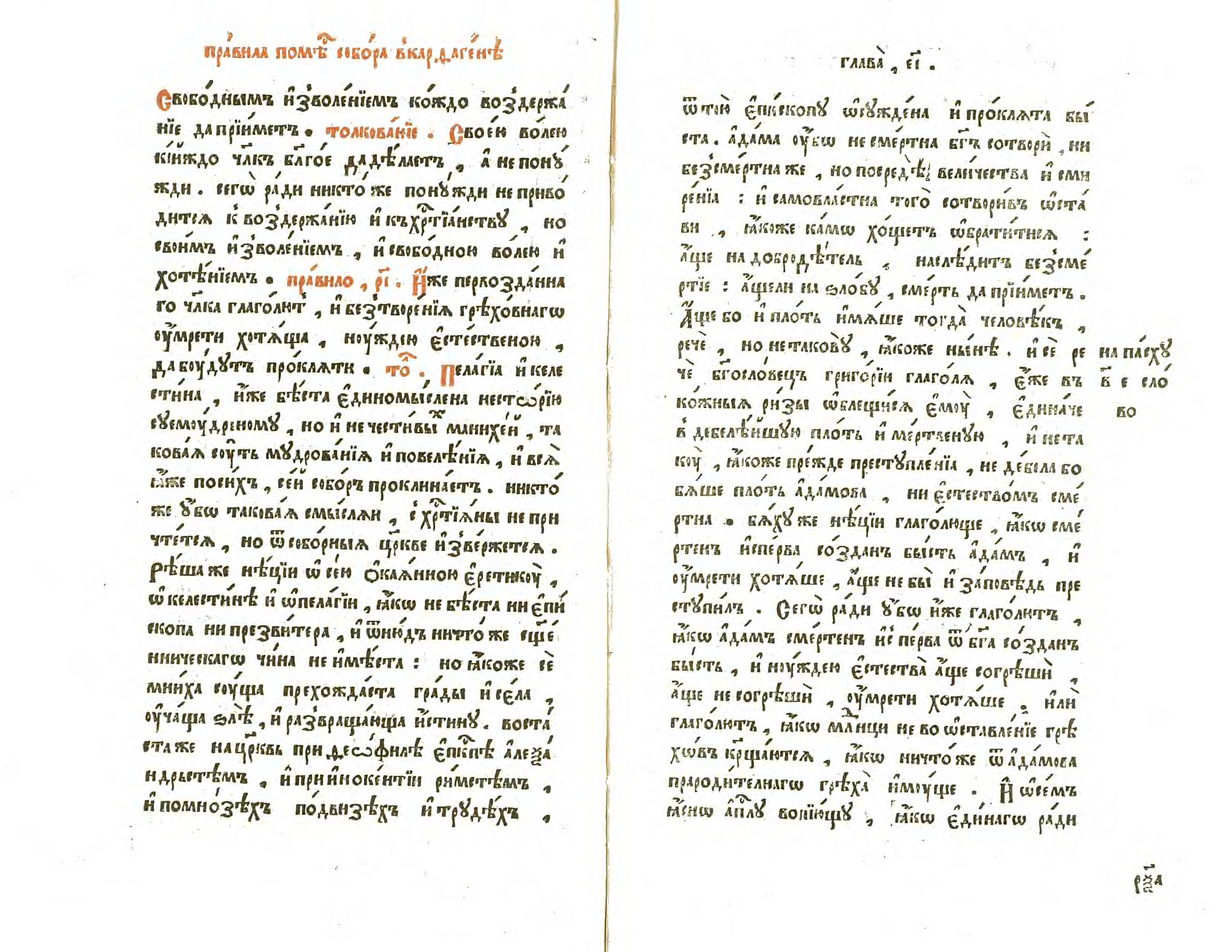 пра́вила помѣ́ст собо́ра в̾кардаге́нѣ
Свобо́днымъ и҆зволе́нїемъ ко́ждо воздержа́
нїе да прїи́метъ . толкова́нїе . Свое́ю во́лею
кі́йждо чл҃къ бл҃го́е да дѣ́лаетъ , а҆ не пону́
жди . сегѡ̀ ра́ди никто́ же пону́жди не приво́
дитсѧ к̾ воздержа́нїю и҆ къ хрⷭ҇тїа́нству , но
свои́мъ и҆зволе́нїемъ , и҆ свобо́дною во́лею и҆
хотѣ́нїемъ . пра́вило , р҃і . И҆̀же первозда́нна
го чл҃ка глаго́лют , и҆ без̾творе́нїѧ грѣхо́внагѡ
оу҆мре́ти хотѧ́ща , ноу́ждею є҆сте́ственою ,
да боу́дутъ про́клѧти . то̑ . Пела́гїа и҆ келе
сти́на , и҆́же бѣ́ста є҆диномы́слена несто́рїю
суемоу́дреному , но и҆ нечести́вых манихе́й , та
кова́ѧ соу́ть мудрова́нїѧ и҆ повелѣ́нїѧ , и҆ всѧ̀
ꙗ҆́же по си́хъ , се́й собо́ръ проклина́етъ . никто́
же у҆́бѡ такова́ѧ смы́слѧи , с̾ хрⷭ҇тїѧ́ны не при
чте́тсѧ , но ѿ собо́рныѧ цр҃кве и҆зве́ржетсѧ .
Рѣ́ша же нѣ́цїи ѡ҆ сею̀ ѻ҆каѧ́нною є҆ретикоу̀ ,
ѡ҆ келести́нѣ и҆ ѡ҆ пела́гїи , ꙗ҆́кѡ не бѣ́ста ни є҆пи́
скопа ни презви́тера , и҆ ѿню́дъ ничто́ же сщ҃е́
нническагѡ чи́на не и҆мѣ́ста : но ꙗ҆́коже се́
мни́ха соу́ща прехожда́ста гра́ды и҆ се́ла ,
оу҆ча́ща ѕлѣ̀ , и҆ развраща́юща и҆́стину . воста́
ста же на цр҃квь при деѡ́филѣ є҆пкⷭ҇пѣ але́ѯа
ндрьстѣмъ , и҆ при и҆ноке́нтїи ри́мстѣмъ ,
и҆ по мно́зѣхъ по́двизѣхъ и҆ труде́хъ ,
глава̀ , е҃і .
ѿ тою̀ є҆пи́скопу ѡ҆сужде́на и҆ про́клѧта бы́
ста . а҆да́ма оу҆́бѡ не сме́ртна бг҃ъ сотворѝ , ни
безсме́ртна же , но посредѣ̀ вели́чества и҆ сми
ре́нїа : и҆ самовла́стна того̀ сотвори́въ ѡ҆ста́
ви , ꙗ҆́коже ка́мѡ хо́щетъ ѡ҆брати́тисѧ :
а҆́ще на добродѣ́тель , наслѣ́дитъ безсме́
ртїе : а҆́ще ли на ѕло́бу , сме́рть да прїи́метъ .
А҆́ще бо и҆ пло́ть и҆мѧ́ше тогда̀ человѣ́къ ,
речѐ , но не такову̀ , ꙗ҆́коже ны́нѣ . и҆ сѐ ре
чѐ бг҃осло́вецъ григо́рїи глаго́лѧ , є҆́же въ
ко́жныѧ ри́зы ѡ҆блещи́сѧ є҆моу̀ , є҆дина́че
в̾ дебелѣ́йшую пло́ть и҆ ме́ртвеную , и҆ не та
коу̀ , ꙗ҆́коже пре́жде преступле́нїа , не дебела́ бо
бѧ́ше пло́ть а҆да́мова , ни є҆стество́мъ сме́
ртна . бѧ́ху же нѣ́цїи глаго́люще , ꙗ҆́кѡ сме́
ртенъ и҆спе́рва со́зданъ бы́сть а҆да́мъ , и҆
оу҆мре́ти хотѧ́ше , а҆́ще не бы̀ и҆ за́повѣдь пре
ступи́лъ . Сегѡ̀ ра́ди у҆́бѡ и҆́же глаго́лютъ ,
ꙗ҆́кѡ а҆да́мъ сме́ртенъ и҆с̾ пе́рва ѿ бг҃а со́зданъ
бы́сть , и҆ ноу́ждею є҆стества̀ а҆́ще согрѣшѝ ,
а҆́ще не согрѣшѝ , оу҆мре́ти хотѧ́ше . и҆лѝ
глаго́лютъ , ꙗ҆́кѡ млⷣнци не во ѡ҆ставле́нїе грѣ
хо́въ крⷭ҇ща́ютсѧ , ꙗ҆́кѡ ничто́ же ѿ а҆да́мова
прароди́телнагѡ грѣха̀ и҆му́ще . И҆ ѡ҆ се́мъ
ꙗ҆́снѡ а҆пⷭ҇лу вопїю́щу , ꙗ҆́кѡ є҆ди́нагѡ ра́ди
на па́сху
в҃ е сло́
во